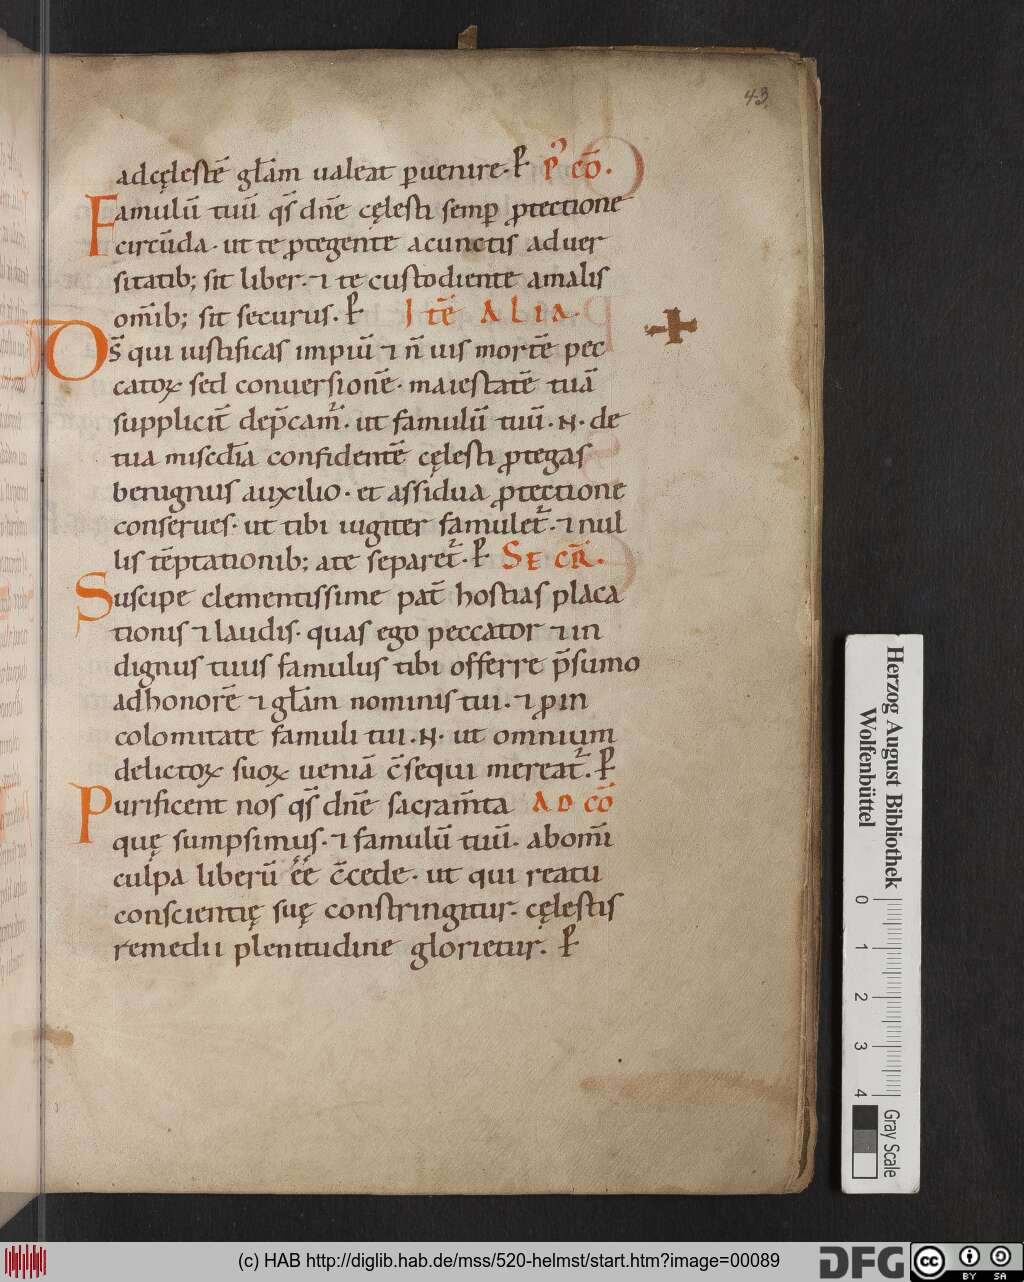 43
adcęlestē głam ualeat ꝑuenire. ꝑ Pꝰ cō.
Famulū tuū qs̄ dn̄e cęlesti semꝑ ꝓtectione
circūda. ut te ꝓtegente acunctis aduer
sitatib; sit liber. ⁊ te custodiente amalis
om̄ib; sit securus. ꝑ Itē ALIA.
Ds̄ qui iustificas impiū ⁊ n̄ uis mortē pec
catoꝝ sed conuersionē. maiestatē tuā
supplicit̄ dep̄cam̄. ut famulū tuū. N. de
tua misc̄dia confidentē cęlesti ꝓtegas
benignus auxilio. et assidua ꝓtectione
conserues. ut tibi iugiter famulet̄. ⁊ nul
lis tēptationib; ate separet̄. ꝑ SECR̄.
Suscipe clementissime pat̄ hostias placa
tionis ⁊ laudis. quas ego peccator ⁊ in
dignus tuus famulus tibi offerre p̄sumo
adhonorē ⁊ głam nominis tui. ⁊ ꝓ in
colomitate famuli tui. N. ut omnium
delictoꝝ suoꝝ ueniā c̄sequi mereat̄. ꝑ
Purificent nos qs̄ dn̄e sacram̄ta AD CŌ
quę sumpsimus. ⁊ famulū tuū. abom̄i
culpa liberū ēē c̄cede. ut qui reatu
conscientię suę constringitur. cęlestis
remedii plenitudine glorietur. ꝑ
Herzog August Bibliothek
Wolfenbüttel
0 1 2 3 4
Gray Scale
(c) HAB http://diglib.hab.de/mss/520-helmst/start.htm?image=00089
DFG
cc BY SA